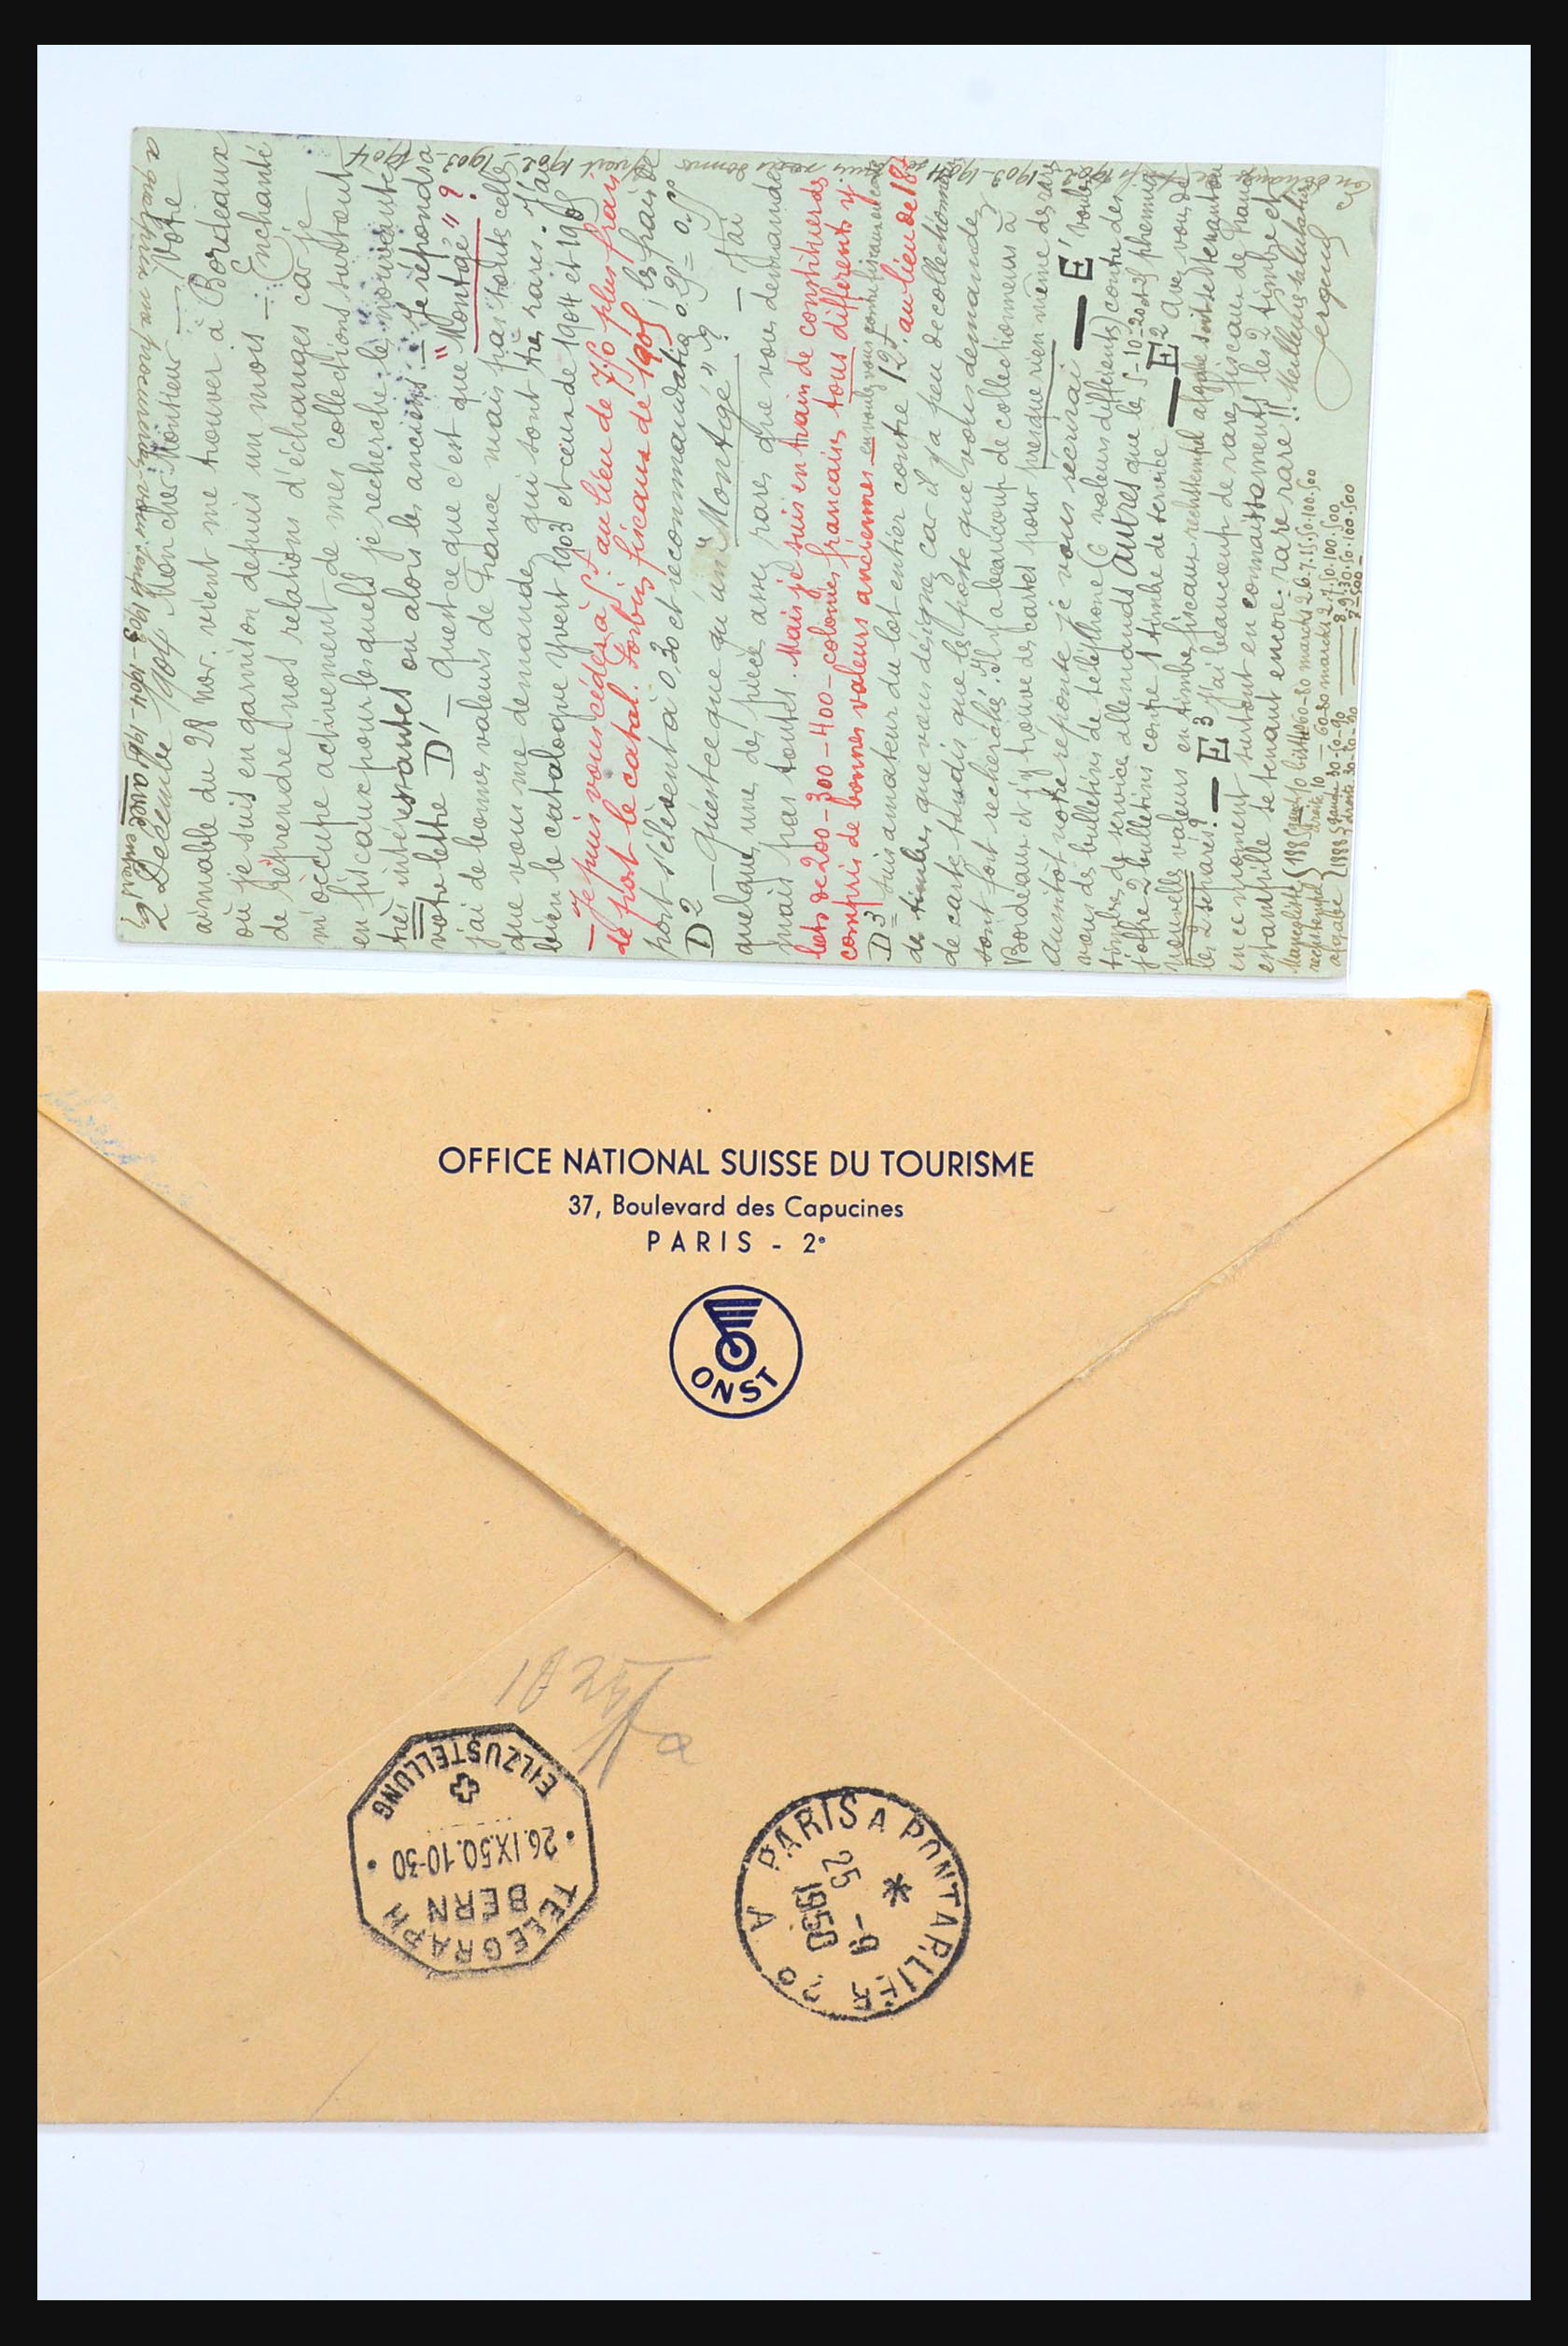 2 Décembre 1905 Mon cher Monsieur — Votre
aimable du 28 Nov. vient me trouver à Bordeaux
où je suis en garnison depuis un mois — Enchanté
de reprendre nos relations d'échanges car je
m'occupe activement de mes collections surtout
en fiscaux pour lesquels je recherche les nouveautés
très intéressantes ou alors les anciens — Je répondrai à
votre lettre D' — Qu'est ce que c'est que "Montgé" ?
j'ai de bonnes valeurs de France mais pas toutes celles
que vous me demandez qui sont très rares. J'ai
bien le catalogue Yvert 1903 et ceux de 1904 et 1905
— Je puis vous céder à 5f au lieu de 7,50 plus frais
de port le catal. Forbin fiscaux de 1905 ; les frais de
port s'élèvent à 0,30 et recommandation 0.25 = 0.55
D2 — qu'est ce que qu'un "Montgé" ? — J'ai
quelques unes des pièces assez rares que vous demandez
mais pas toutes. Mais je suis en train de constituer des
lots de 200 - 300 - 400 - colonies françaises tous différents y
compris de bonnes valeurs anciennes en voulez vous contre fiscaux
D3 suis amateur du lot entier contre 12f au lieu de 18f
des timbres que vous désignez car il y a peu de collectionneurs
de cartes tandis que les postes que vous demandez
sont fort recherchés. Il y a beaucoup de collectionneurs à
Bordeaux et j'y trouve des cartes pour presque rien même des rares
aussitôt votre réponse je vous récrirai — E' voulez
vous des bulletins de téléphone (6 valeurs différentes) contre des
timbres de service allemands AUTRES que les 5-10-20 et 25 phennig
j'offre 2 bulletins contre 1 timbre de service — E2 avez vous de
nouvelles valeurs en timbres fiscaux rechtstempel abgabe soit se tenant ou
les 2 séparés? — E3 j'ai beaucoup de rares fiscaux de
en ce moment surtout en connaissements les 2 timbres et
estampille se tenant encore. rare rare!! Meilleures salutations
OFFICE NATIONAL SUISSE DU TOURISME
37, Boulevard des Capucines
PARIS - 2e
ONST
EILZUSTELLUNG
26.IX.50.10-30
BERN
TELEGRAPH
PARIS A PONTARLIER 2o A
25
-9
1950